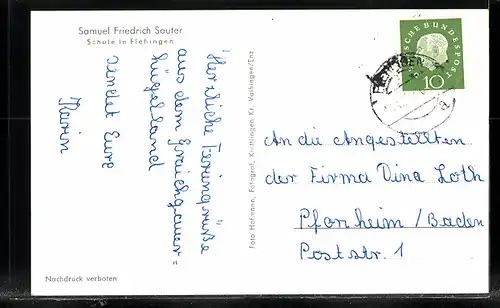 Samuel Friedrich Sauter
Schule in Flehingen
Herzliche Feriengrüße
aus dem Kraichgauer=
hügelland
sendet Eure
Karin
Foto Hofmann, Fotograf, Knittlingen, Kr. Vaihingen/Enz
DEUTSCHE BUNDESPOST
10
An die Angestellten
der Firma Dina Loth
Pforzheim/Baden
Poststr. 1
Nachdruck verboten